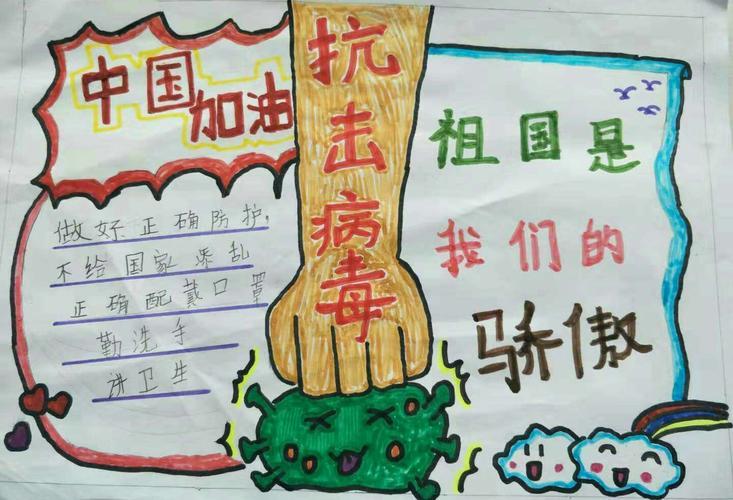 中国
加油
做好正确防护,
不给国家添乱
正确配戴口罩
勤洗手
讲卫生
抗击病毒
祖国是
我们的
骄傲